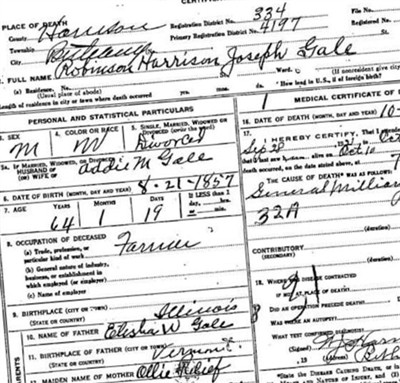 CERTIFIC
PLACE OF DEATH
County Harrison
Registration District No. 334
File No.
Township Bethany
Primary Registration District No. 4197
Registered No.
City
2. FULL NAME Robinson Harrison Joseph Gale
(a) Residence. No. St. Ward.
(Usual place of abode) (If nonresident give city
Length of residence in city or town where death occurred yrs. mos. ds. How long in U.S., if of foreign birth?
PERSONAL AND STATISTICAL PARTICULARS
MEDICAL CERTIFICATE OF D
3. SEX
4. COLOR OR RACE
5. SINGLE, MARRIED, WIDOWED OR DIVORCED (write the word)
M W Divorced
16. DATE OF DEATH (MONTH, DAY AND YEAR) 10-
5a. IF MARRIED, WIDOWED, OR DIVORCED
HUSBAND OF
(OR) WIFE OF Addie M Gale
17. I HEREBY CERTIFY, That I
Sep 28 Oct 10
that I last saw alive on
death occurred, on the date stated above, at
6. DATE OF BIRTH (MONTH, DAY AND YEAR) 8-21-1857
THE CAUSE OF DEATH WAS AS FOLLOWS:
7. AGE YEARS MONTHS DAYS If LESS than 1 day, hrs. or min.
64 1 19
General
32A
8. OCCUPATION OF DECEASED
(a) Trade, profession, or
particular kind of work Farmer
(b) General nature of industry,
business, or establishment in
which employed (or employer)
(c) Name of employer
(duration)
CONTRIBUTORY
(SECONDARY)
(duration)
9. BIRTHPLACE (CITY OR TOWN)
(STATE OR COUNTRY) Illinois
18. WHERE WAS DISEASE CONTRACTED
IF NOT AT PLACE OF DEATH?
DID AN OPERATION PRECEDE DEATH?
10. NAME OF FATHER Elisha W Gale
WAS THERE AN AUTOPSY?
11. BIRTHPLACE OF FATHER (CITY OR TOWN)
(STATE OR COUNTRY) Vermont
WHAT TEST CONFIRMED DIAGNOSIS?
(Signed)
12. MAIDEN NAME OF MOTHER Ollie
*State the DISEASE CAUSING DEATH, or in